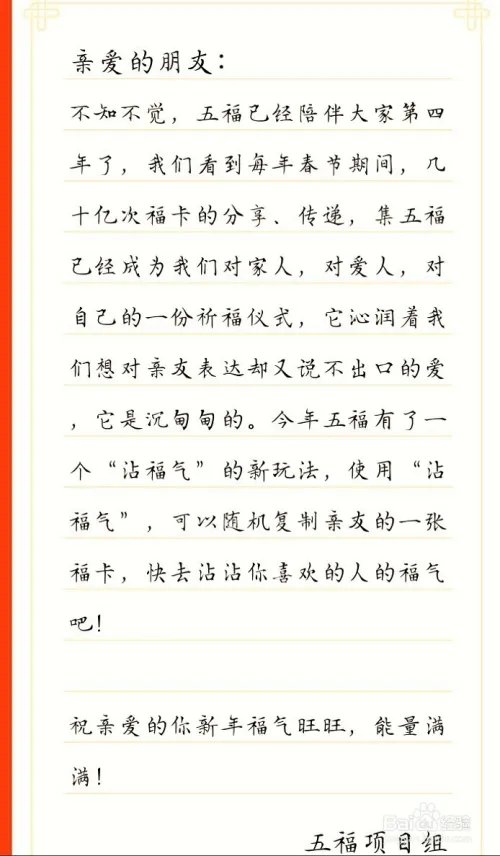 亲爱的朋友：
不知不觉，五福已经陪伴大家第四
年了，我们看到每年春节期间，几
十亿次福卡的分享、传递，集五福
已经成为我们对家人，对爱人，对
自己的一份祈福仪式，它沁润着我
们想对亲友表达却又说不出口的爱
，它是沉甸甸的。今年五福有了一
个“沾福气”的新玩法，使用“沾
福气”，可以随机复制亲友的一张
福卡，快去沾沾你喜欢的人的福气
吧！
祝亲爱的你新年福气旺旺，能量满
满！
Baidu经验
五福项目组